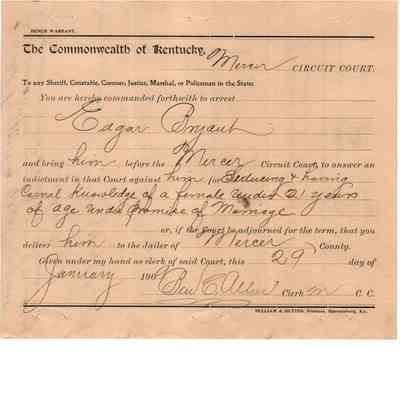 BENCH WARRANT.
The Commonwealth of Kentucky,
Mercer CIRCUIT COURT.
To any Sheriff, Constable, Coroner, Justice, Marshal, or Policeman in the State:
You are hereby commanded forthwith to arrest
Edgar Bryant
and bring him before the Mercer Circuit Court, to answer an
indictment in that Court against him for Seducing & having
Carnal knowledge of a female under 21 years
of age under promise of Marriage
or, if the Court be adjourned for the term, that you
deliver him to the Jailer of Mercer County.
Given under my hand as clerk of said Court, this 29 day of
January 190 Ben C Allen Clerk M C. C.
Harrodsburg, Ky.